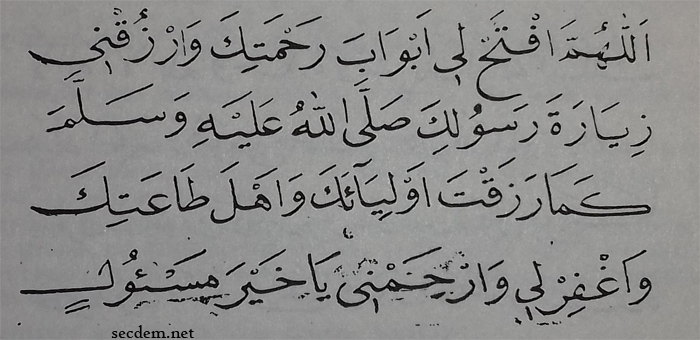 اَللّٰهُمَّ افْتَحْ لِي اَبْوَابَ رَحْمَتِكَ وَارْزُقْنِي
زِيَارَةَ رَسُولِكَ صَلَّى اللهُ عَلَيْهِ وَسَلَّمَ
كَمَا رَزَقْتَ اَوْلِيَآئَكَ وَاَهْلَ طَاعَتِكَ
وَاغْفِرْ لِي وَارْحَمْنِي يَا خَيْرَ مَسْئُولٍ
secdem.net